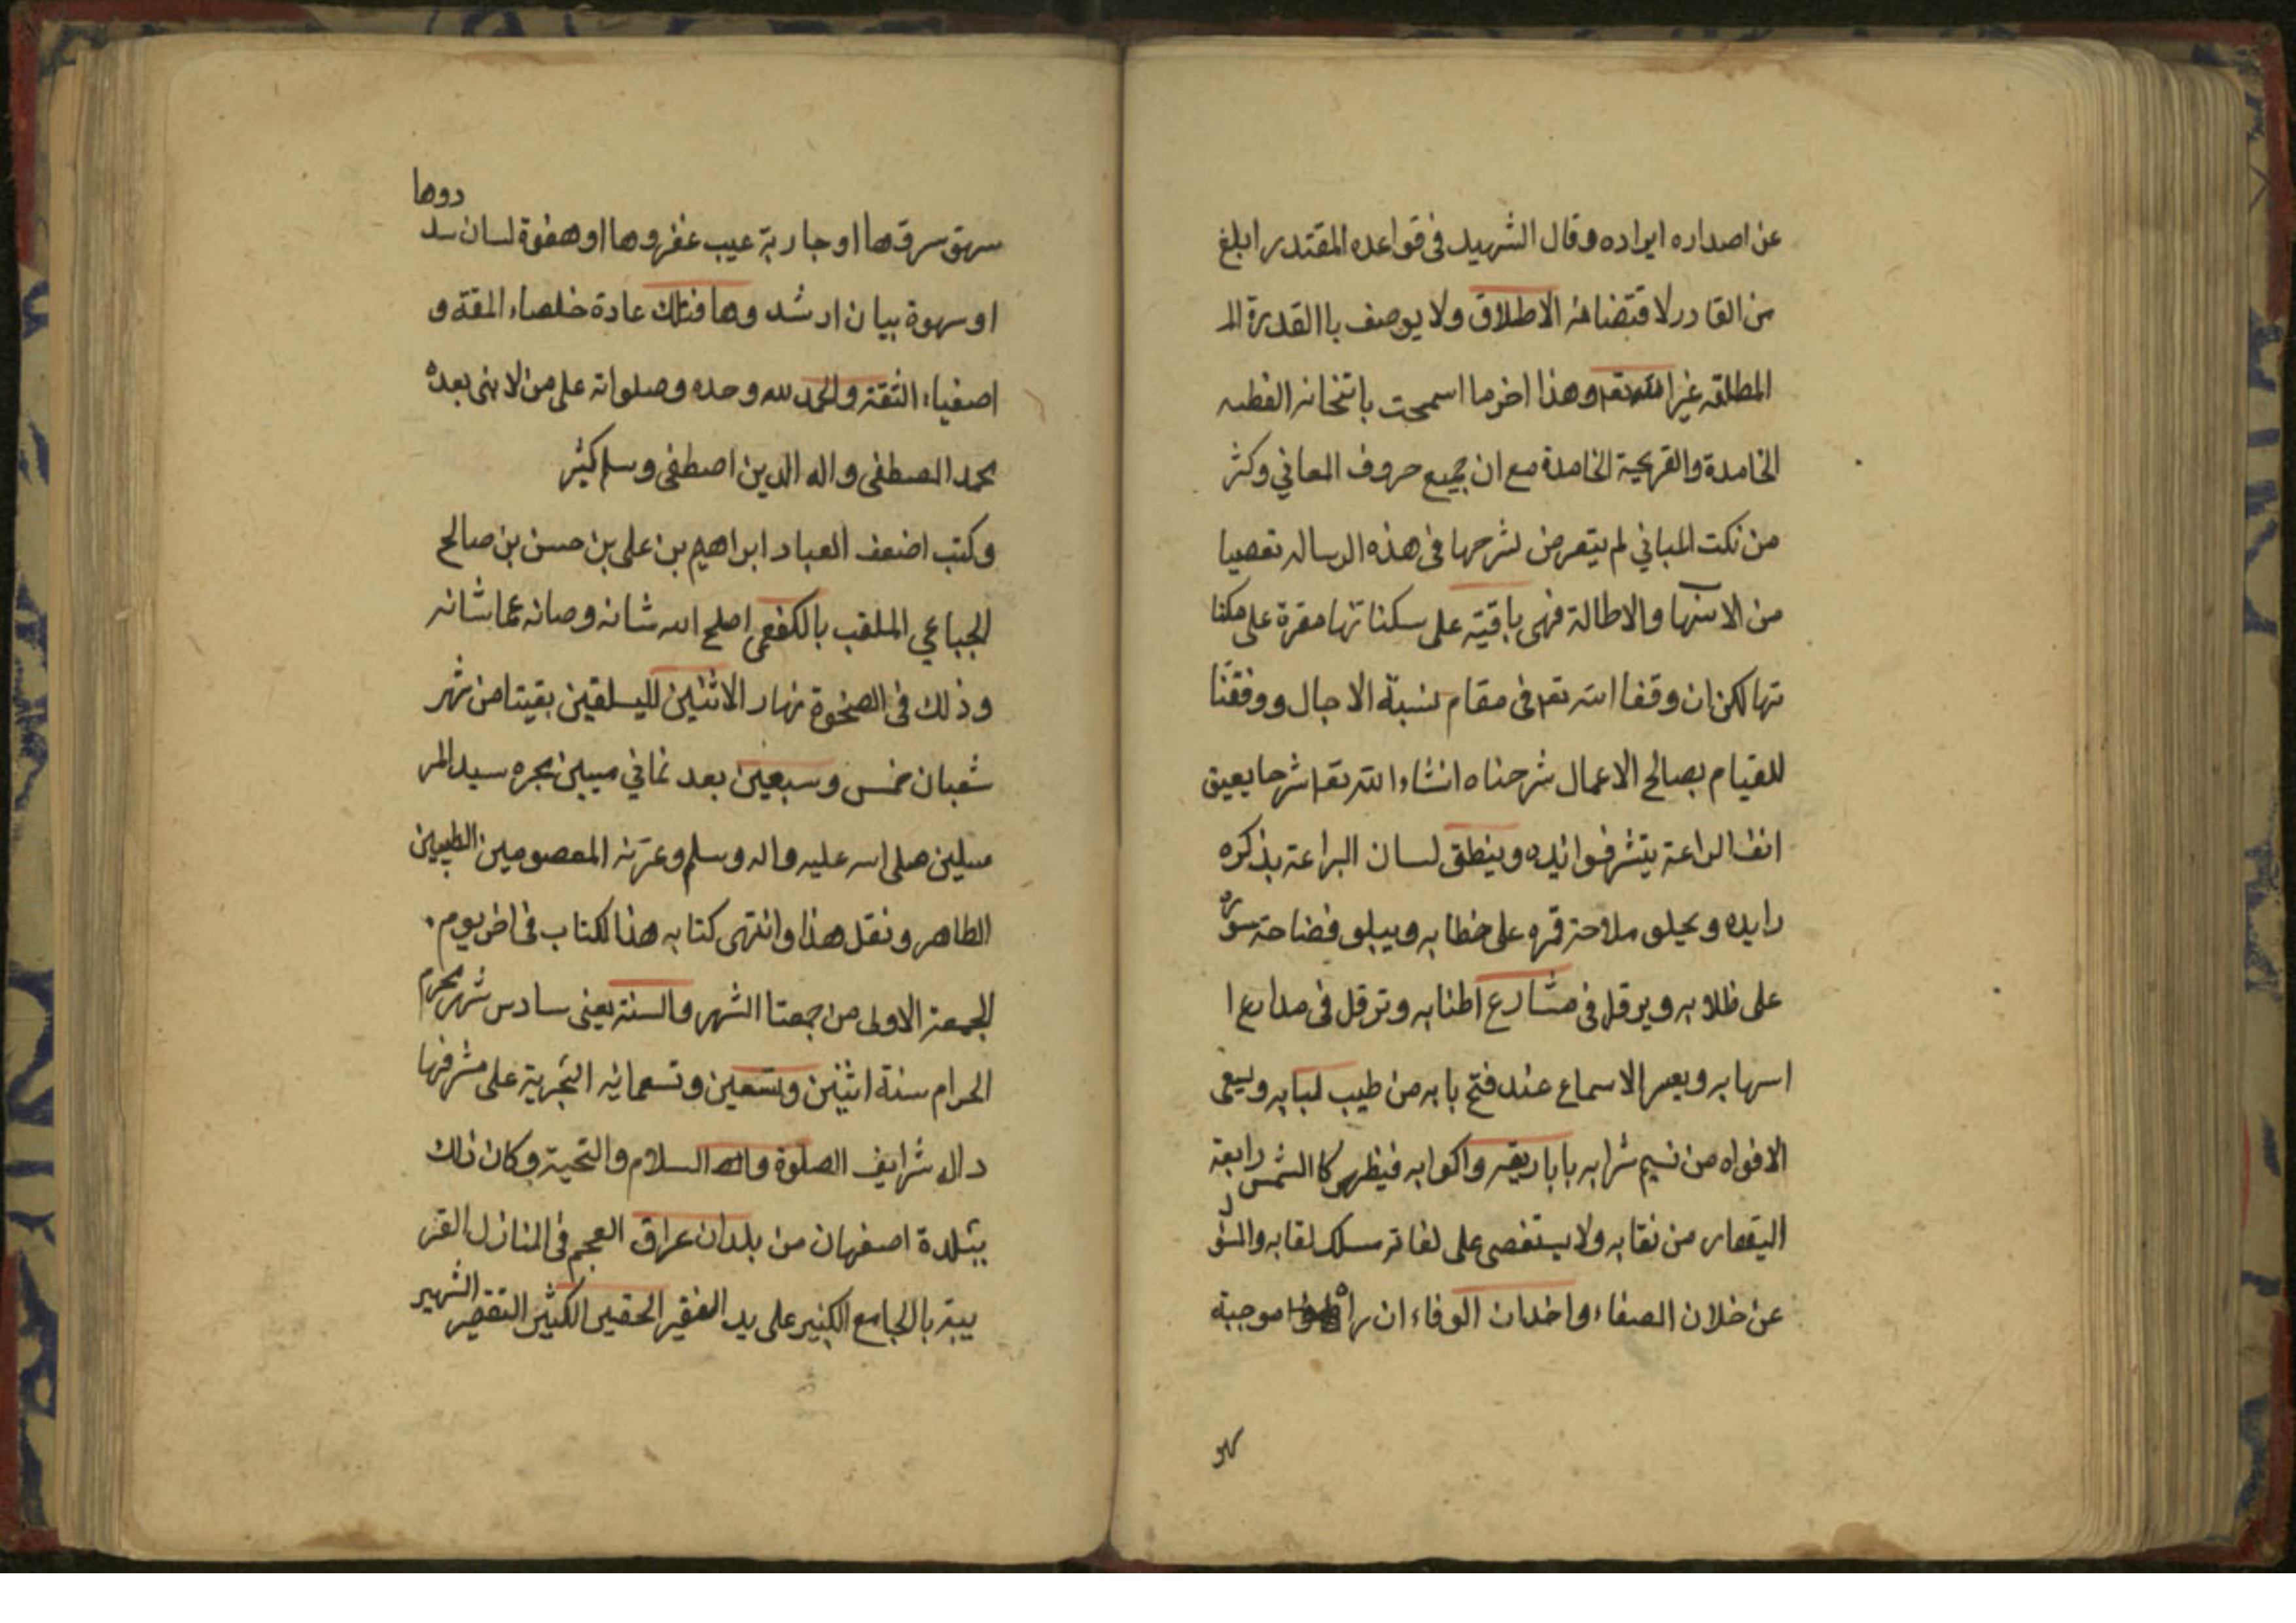 عن اصداره ايراده وقال الشهيد فى قواعده المقتدر ابلغ
من القادر لاقتضائه الاطلاق ولا يوصف باالقدرة الـ
المطلقه غير الله تعـ وهذا اخر ما اسمحت باتنخانه الفطنه
الخامدة والقريحية الخامدة مع ان جميع حروف المعاني وكثر
من نكت المباني لم يتعرض لشرحها فى هذه الرساله تعصيا
من الاسها والاطالة فهى باقيته على سكناتها مقرة على مكنا
تها لكن ان وقفا الله تعـ فى مقام نسبة الاجال ووفقنا
للقيام بصالح الاعمال شرحناه انشاء الله تعـ شرحا يعيق
انف البراعة بنشر فوائده وينطق لسان البراعة بذكره
رايده و يحيلو ملاحة قمره على خطابه ويبلو فضاحة سوره
على ظلابه ويرقل فى مشارع اطنابه وترقل فى مدارع ا
اسهابه ويعير الاسماع عند فتح بابه من طيب لبابه ويسعى
الافواه من نسيم شرابه باباريقه واكوابه فيظهر كاالشمس رابعة
اليقهار من نقابه ولا يستغصى على لغاته سلك لقابه والسؤ
عن خلان الصفاء واخدان الوفاء ان راه موجبة
دوها
سهق سرقها او جاربة عيب غفروها او هفوة لسان سد
او سهوة بيان ارشد وها فتلك عادة خلصاء المقة و
اصفياء الثقة والحمد لله وحده وصلواته على من لا نبى بعده
محمد المصطفى واله الدين اصطفى وسلم كثير
وكتب اضعف العباد ابراهيم بن على بن حسن بن صالح
الجباعي الملقب بالكفعمى اصلح الله شانه وصانه عما شانه
وذلك فى الضحوة نهار الاثنين لليلتين بقيتا من شهر
شعبان خمس وسبعين بعد ثماني ميين هجره سيد المر
سلين صلى الله عليه واله وسلم وعترته المعصومين الطيبين
الطاهر و نقل هذا وانتهى كتابه هذا لكتاب فى اخر يوم
الجمعة الاولى من جمعتا الشهر والسنة يعنى سادس شهر محرم
الحرام سنة اثنين وتسعين وتسعمائه الهجرية على مشرفها
واله شرايف الصلوة والسلام والتحية وكان ذلك
ببلدة اصفهان من بلدان عراق العجم فى المنازل القر
يبة بالجامع الكبير على يد الفقير الحقير الكثير التقصير الشهير